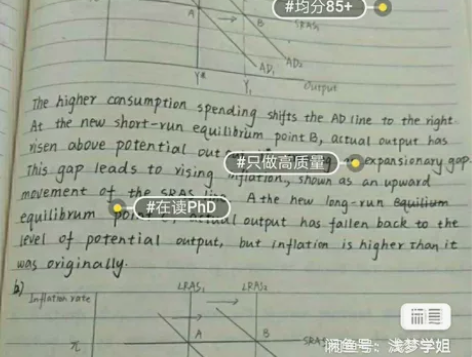 #均分85+
A
B
SRAS₁
AD₂
AD₁
Y*
Y₁
output
The higher consumption spending shifts the AD line to the right.
At the new short-run equilibrium point B, actual output has
risen above potential out expansionary gap.
#只做高质量
This gap leads to rising inflation, shown as an upward
movement of the SRAS line. A the new long-run equilium
#在读PhD
equilibrum actual output has fallen back to the
level of potential output, but inflation is higher than it
was originally.
b)
Inflation rate
LRAS₁
LRAS₂
A
B
SRAS
π
闲鱼号：浅梦学姐